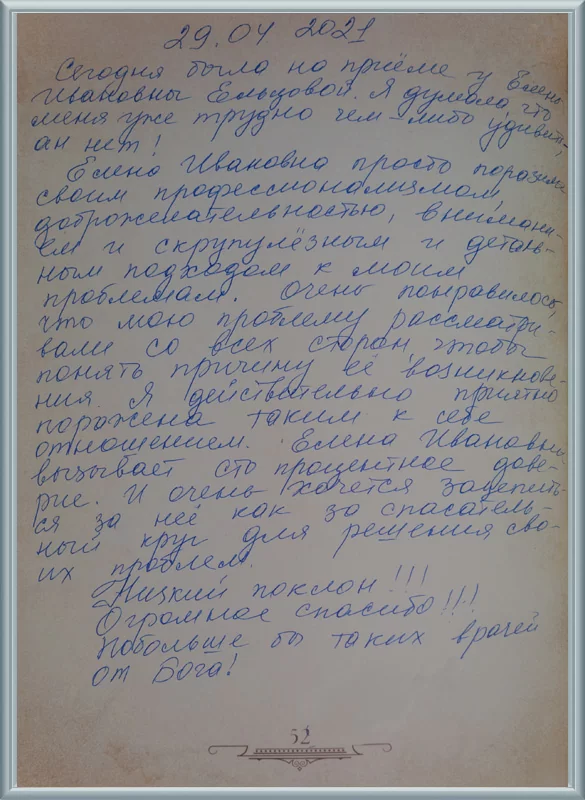 29.04 2021
Сегодня была на приёме у Елены
Ивановны Ельцовой. Я думала, что
меня уже трудно чем-либо удивить,
ан нет!
Елена Ивановна просто поразила
своим профессионализмом,
доброжелательностью, внимани-
ем и скрупулёзным и деталь-
ным подходом к моим
проблемам. Очень понравилось,
что мою проблему рассматри-
вали со всех сторон, чтобы
понять причину её возникнове-
ния. Я действительно приятно
поражена таким к себе
отношением. Елена Ивановна
вызывает сто процентное дове-
рие. И очень хочется зацепить-
ся за неё как за спасатель-
ный круг для решения сво-
их проблем.
Низкий поклон!!!
Огромное спасибо!!!
Побольше бы таких врачей
от Бога!
52